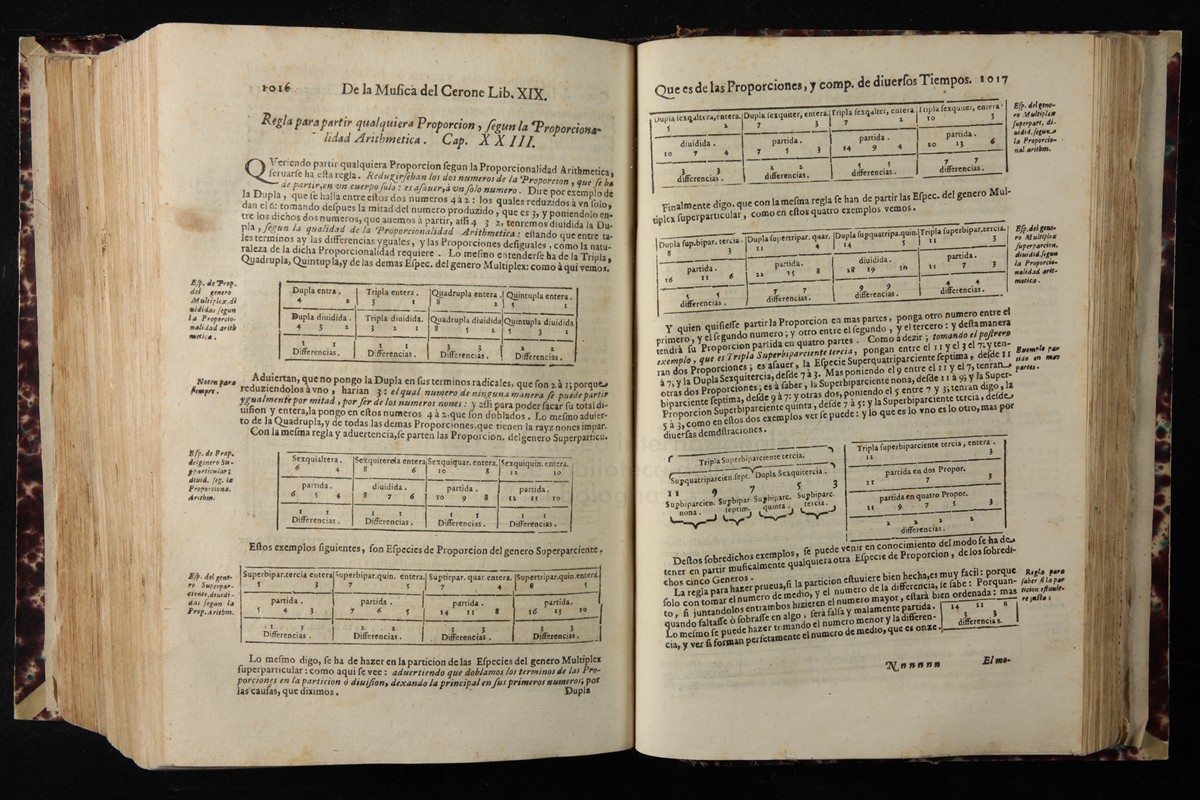 1016 De la Musica del Cerone Lib. XIX.
Regla para partir qualquiera Proporcion, segun la Proporciona-
lidad Arithmetica. Cap. XXIII.
QVeriendo partir qualquiera Proporcion segun la Proporcionalidad Arithmetica,
seruarse ha esta regla. Reduzirsehan los dos numeros de la Proporcion, que se ha
de partir, en vn cuerpo solo: es asauer, à vn solo numero. Dire por exemplo de
la Dupla, que se halla entre estos dos numeros 4 à 2: los quales reduzidos à vn solo,
dan el 6: tomando despues la mitad del numero produzido, que es 3, y poniendolo en-
tre los dichos dos numeros, que auemos à partir, assi 4 3 2, tenremos diuidida la Du-
pla, segun la qualidad de la Proporcionalidad Arithmetica: estando que entre ta-
les terminos ay las differencias yguales, y las Proporciones desiguales, como la natu-
raleza de la dicha Proporcionalidad requiere. Lo mesmo entenderse ha de la Tripla,
Quadrupla, Quintupla, y de las demas Espec. del genero Multiplex: como à qui vemos.
Esp. de Prop.
del genero
Multiplex, di
uididas segun
la Proporcio-
nalidad arith
metica.
Dupla entra. Tripla entera. Quadrupla entera. Quintupla entera.
4 2 3 1 8 2 5 1
Dupla diuidida Tripla diuidida. Quadrupla diuidida Quintupla diuidida
4 3 2 3 2 1 8 5 2 5 3 1
1 1 1 1 3 3 2 2
Differencias. Differencias. Differencias. Differencias.
Noten para
siempre.
Aduiertan, que no pongo la Dupla en sus terminos radicales, que son 2 à 1; porque
reduziendolos à vno, harian 3: el qual numero de ninguna manera se puede partir
ygualmente por mitad, por ser de los numeros nones: y assi para poder sacar su total di-
uision y entera, la pongo en estos numeros 4 à 2. que son doblados. Lo mesmo aduier-
to de la Quadrupla, y de todas las demas Proporciones, que tienen la rayz nones impar.
Con la mesma regla y aduertencia, se parten las Proporcion. del genero Superparticu.
Esp. de Prop.
del genero Su-
pparticular;
diuid. seg. la
Proporciona.
Arithm.
Sexquialtera. Sexquitercia entera Sexquiquar. entera. Sexquiquin. entera.
6 4 8 6 10 8 12 10
partida. diuidida. partida. partida.
6 5 4 8 7 6 10 9 8 12 11 10
1 1 1 1 1 1 1 1
Differencias. Differencias. Differencias. Differencias.
Estos exemplos siguientes, son Especies de Proporcion del genero Superparciente.
Esp. del gene-
ro Superpar-
ciente, diuidi-
das segun la
Prop. Arithm.
Superbipar. tercia entera Superbipar. quin. entera. Suptripar. quar. entera Supertripar. quin. entera.
5 3 7 5 7 4 8 5
partida. partida. partida. partida.
5 4 3 7 6 5 14 11 8 16 13 10
1 1 1 1 3 3 3 3
Differencias. Differencias. Differencias. Differencias.
Lo mesmo digo, se ha de hazer en la particion de las Especies del genero Multiplex
superparticular: como aqui se vee: aduertiendo que doblamos los terminos de las Pro-
porciones en la particion ò diuision, dexando la principal en sus primeros numeros; por
las causas, que diximos. Dupla
Que es de las Proporciones, y comp. de diuersos Tiempos. 1017
Dupla sexqaltera, entera. Dupla sexquiter, entera. Tripla sexqalter, entera Tripla sexquiter, entera.
5 2 7 3 7 2 10 3
diuidida. partida. partida. partida.
10 7 4 7 5 3 14 9 4 20 13 6
3 3 2 2 5 5 7 7
differencias. differencias. differencias. differencias.
Esp. del gene-
ro Multiplex
superpart. di-
uidid. segun
la Proporcio-
nal. arithm.
Finalmente digo, que con la mesma regla se han de partir las Espec. del genero Mul-
tiplex superparticular, como en estos quatro exemplos vemos.
Dupla sup. bipar. tercia. Dupla supertripar. quar. Dupla supquatripa. quin. Tripla superbipar. tercia.
8 3 11 4 14 5 11 3
partida. partida. diuidida. partida.
16 11 6 22 15 8 28 19 10 11 7 3
5 5 7 7 9 9 4 4
differencias. differencias. differencias. differencias.
Esp. del gene-
ro Multiplex
superparcien.
diuidid. segun
la Proporcio-
nalidad arit-
metica.
Y quien quisiesse partir la Proporcion en mas partes, ponga otro numero entre el
primero, y el segundo numero; y otro entre el segundo, y el tercero: y desta manera
tendrà su Proporcion partida en quatro partes. Como à dezir; tomando el postrero
exemplo, que es Tripla Superbiparciente tercia, pongan entre el 11 y el 3 el 7; y ten-
ran dos Proporciones; es asauer, la Especie Superquatriparciente septima, desde 11
à 7, y la Dupla Sexquitercia, desde 7 à 3. Mas poniendo el 9 entre el 11 y el 7, tenran
otras dos Proporciones; es à saber, la Superbiparciente nona, desde 11 à 9; y la Super-
biparciente septima, desde 9 à 7: y otras dos, poniendo el 5 entre 7 y 3; tenran digo, la
Proporcion Superbiparciente quinta, desde 7 à 5: y la Superbiparciente tercia, desde
5 à 3, como en estos dos exemplos ver se puede: y lo que es lo vno es lo otro, mas por
diuersas demostraciones.
Exemplo par
tido en mas
partes.
Tripla Superbiparciente tercia.
Supquatriparcien. sept. Dupla Sexquitercia.
11 9 7 5 3
Supbiparcien. Supbipar. Supbiparc. Supbiparc.
nona. septim. quinta. tercia.
Tripla superbiparciente tercia, entera.
11 3
partida en dos Propor.
11 7 3
partida en quatro Propor.
11 9 7 5 3
2 2 2 2
differencias.
Destos sobredichos exemplos, se puede venir en conocimiento del modo se ha de
tener en partir musicalmente qualquiera otra Especie de Proporcion, de los sobredi-
chos cinco Generos.
La regla para hazer prueua, si la particion estuuiere bien hecha, es muy facil: porque
solo con tomar el numero de medio, y el numero de la differencia, se sabe: Porquan-
to, si juntandolos entrambos hizieren el numero mayor, estarà bien ordenada: mas
quando faltasse ò sobrasse en algo, serà falsa y malamente partida.
Lo mesmo se puede hazer tomando el numero menor y la differen-
cia, y ver si forman perfetamente el numero de medio, que es onze.
14 11 8
3 3
differencias.
Regla para
saber si la par
ticion estuuie-
re justa:
Nnnnnn El mo-